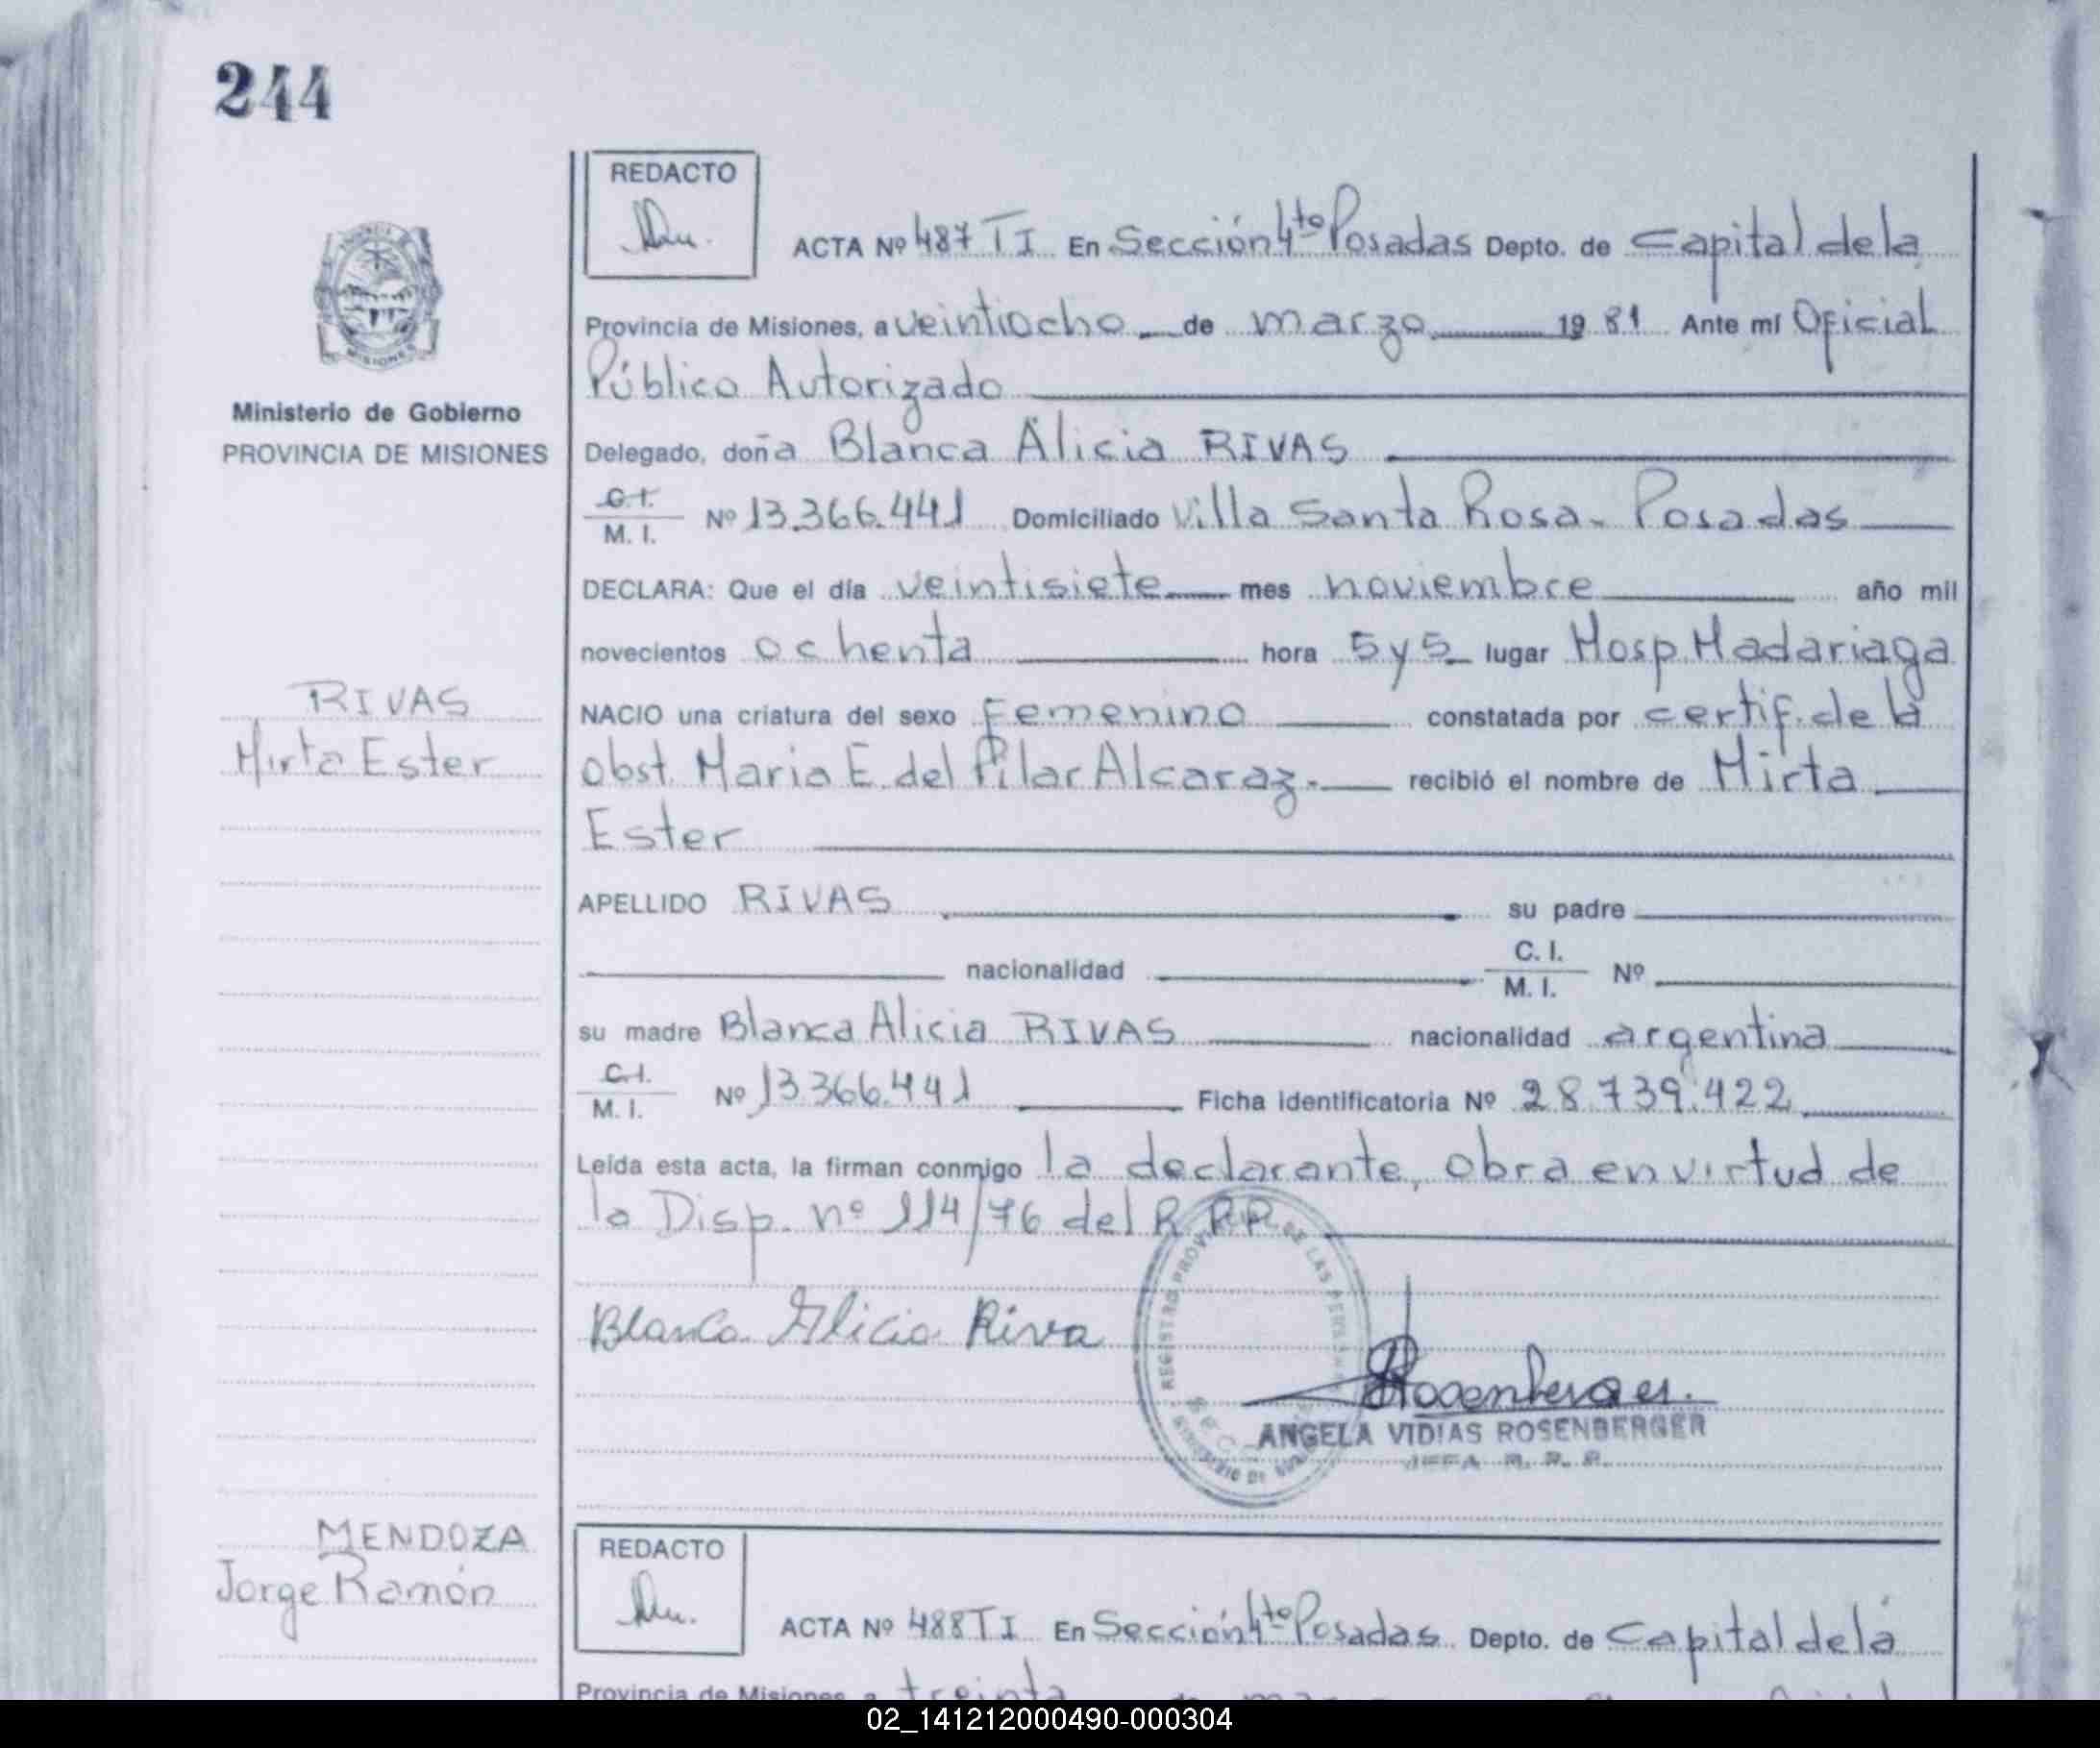 244
REDACTO
ACTA Nº 487 TI En Sección 4to Posadas Depto. de Capital de la
Provincia de Misiones, a veintiocho de marzo 1981 Ante mí Oficial
Público Autorizado
Ministerio de Gobierno
PROVINCIA DE MISIONES
Delegado, doña Blanca Alicia RIVAS
C.I.
M. I. Nº 13.366.441 Domiciliado Villa Santa Rosa - Posadas
DECLARA: Que el día veintisiete mes noviembre año mil
novecientos ochenta hora 5 y 5 lugar Hosp. Madariaga
RIVAS
Mirta Ester
NACIO una criatura del sexo Femenino constatada por certif. de la
obst. Maria E. del Pilar Alcaraz.- recibió el nombre de Mirta
Ester
APELLIDO RIVAS su padre
nacionalidad C. I.
M. I. Nº
su madre Blanca Alicia RIVAS nacionalidad argentina
C.I.
M. I. Nº 13.366.441 Ficha identificatoria Nº 28.739.422
Leída esta acta, la firman conmigo la declarante, obra en virtud de
la Disp. nº 114/76 del R.P.P.
Blanca Alicia Riva
Rosenberger
ANGELA VIDIAS ROSENBERGER
JEFA R. P. P.
MENDOZA
Jorge Ramón
REDACTO
ACTA Nº 488 TI En Sección 4to Posadas Depto. de Capital de la
Provincia de Misiones, a treinta
02_141212000490-000304